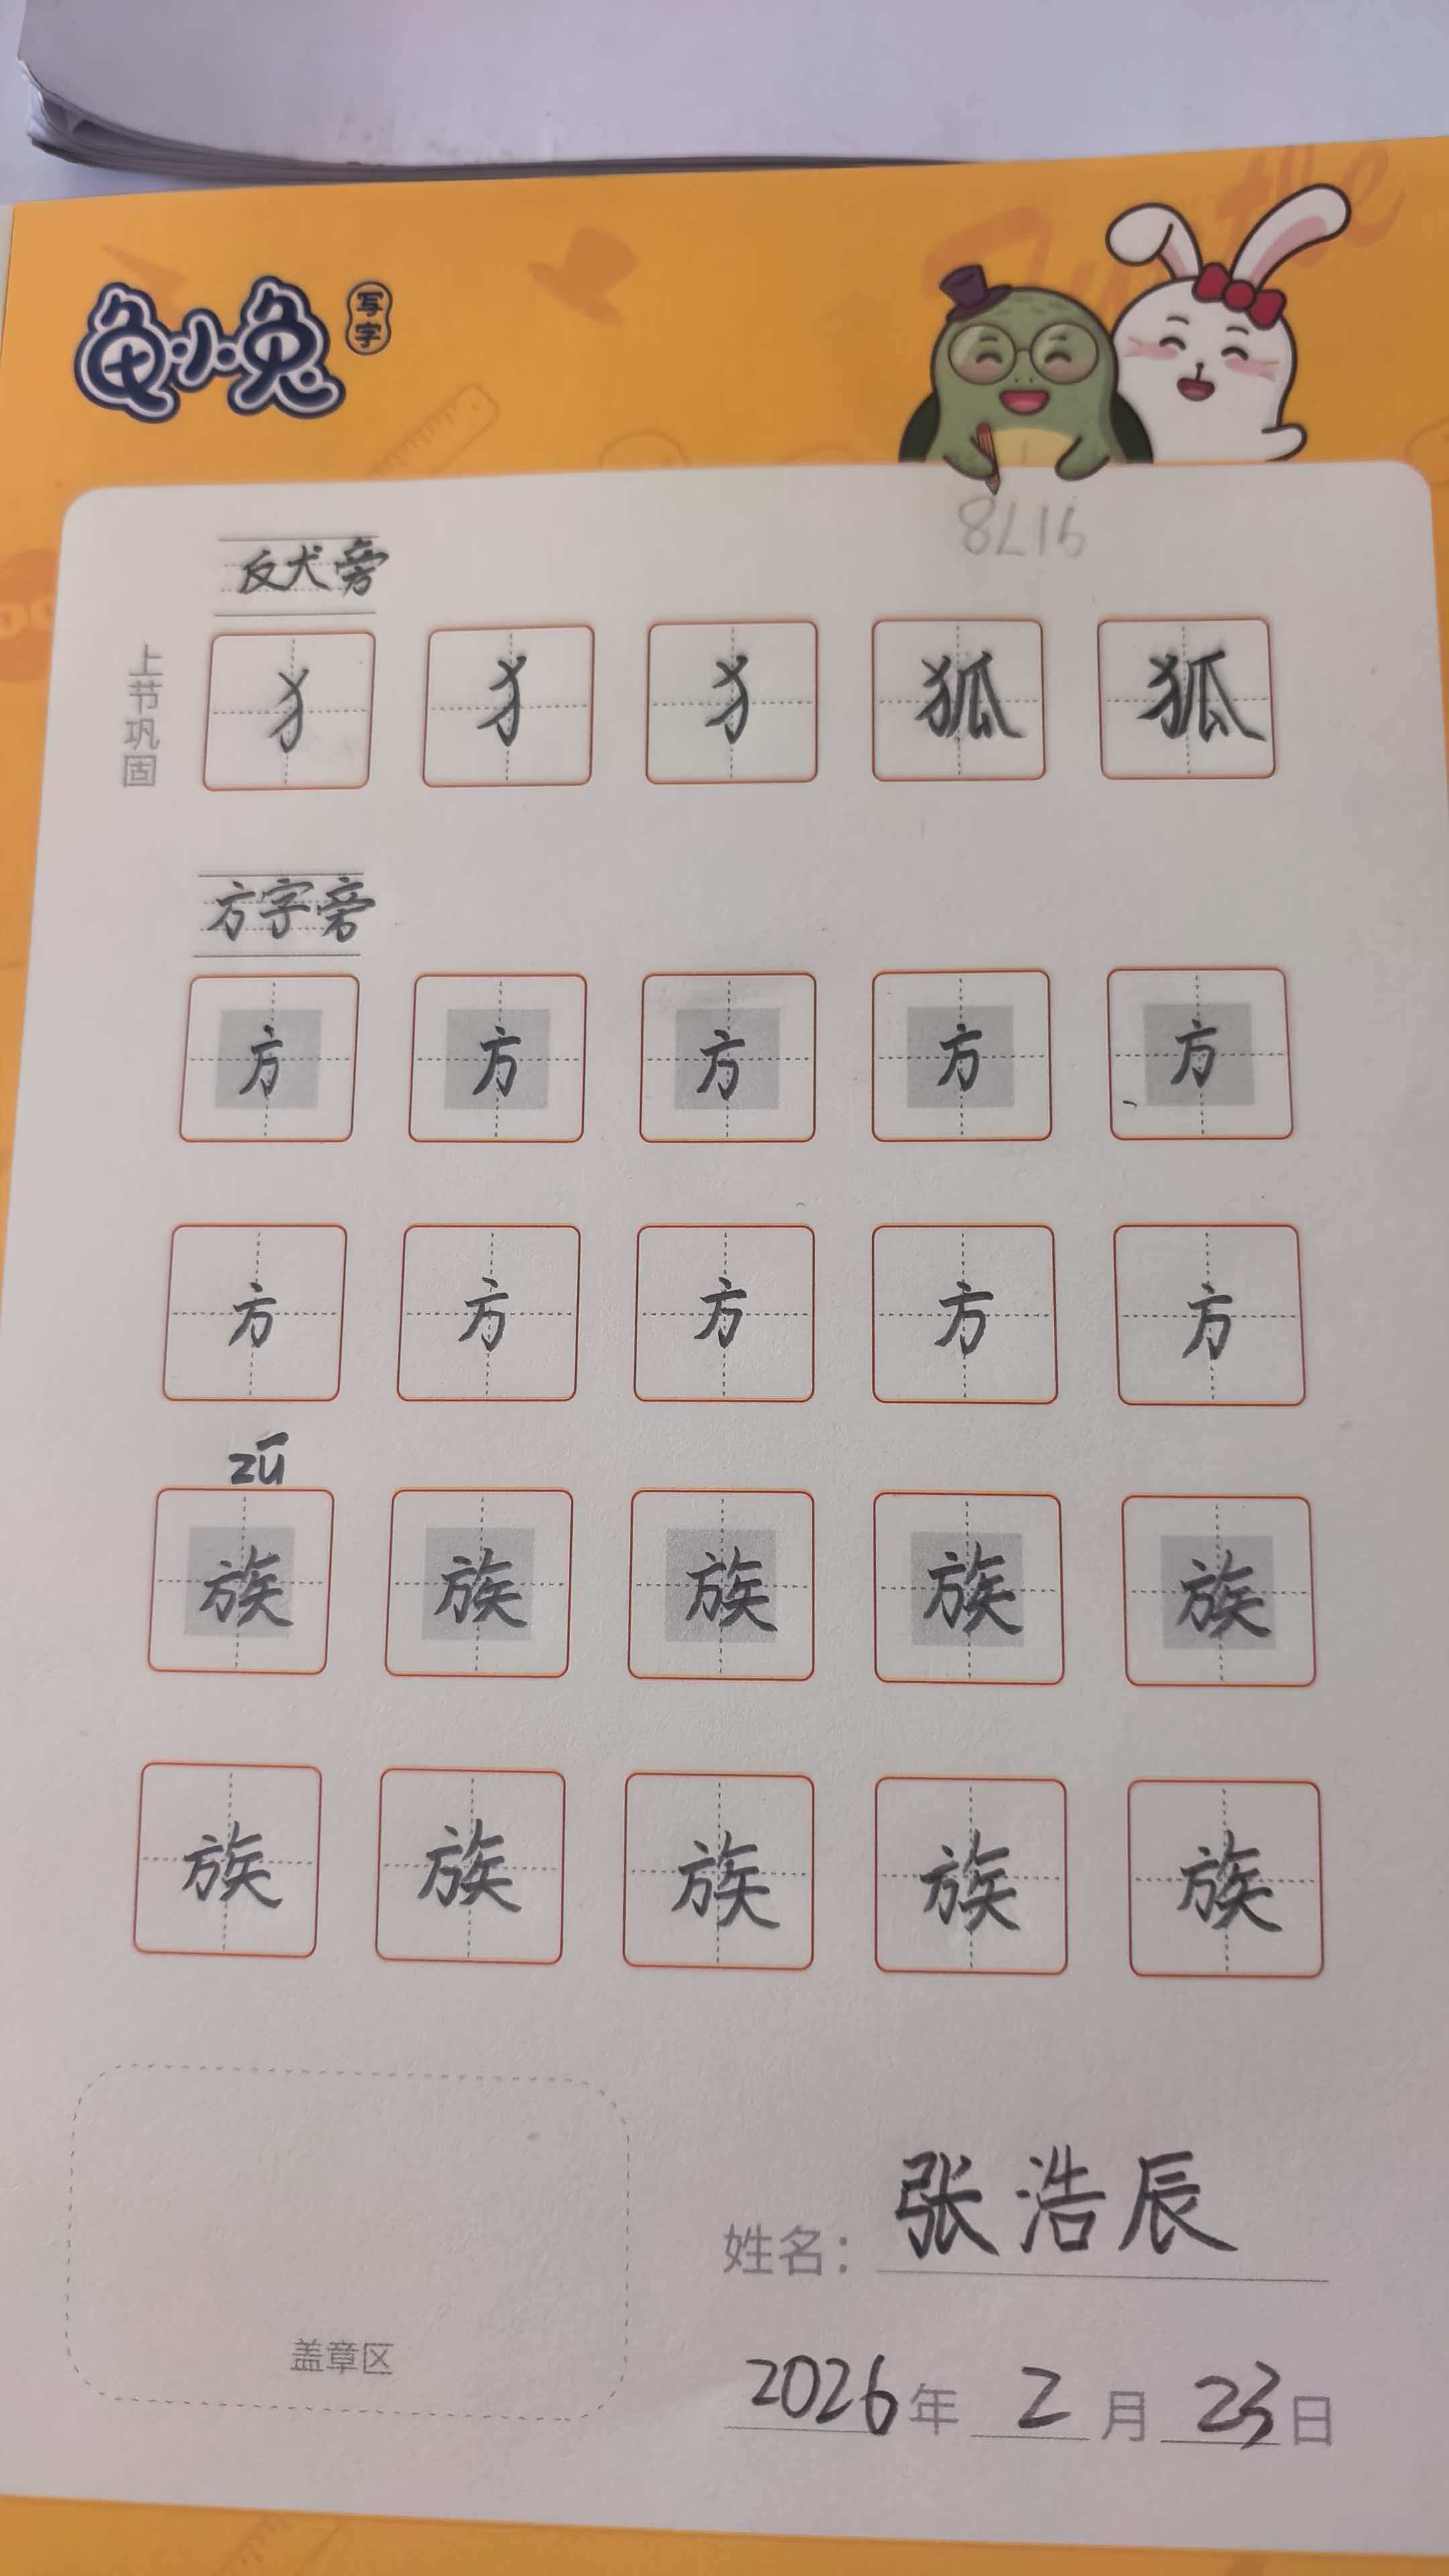 龟小兔 写字
8416
反犬旁
上节巩固
犭 犭 犭 狐 狐
方字旁
方 方 方 方 方
方 方 方 方 方
zū
族 族 族 族 族
族 族 族 族 族
姓名：张浩辰
盖章区
2026年 2月 23日